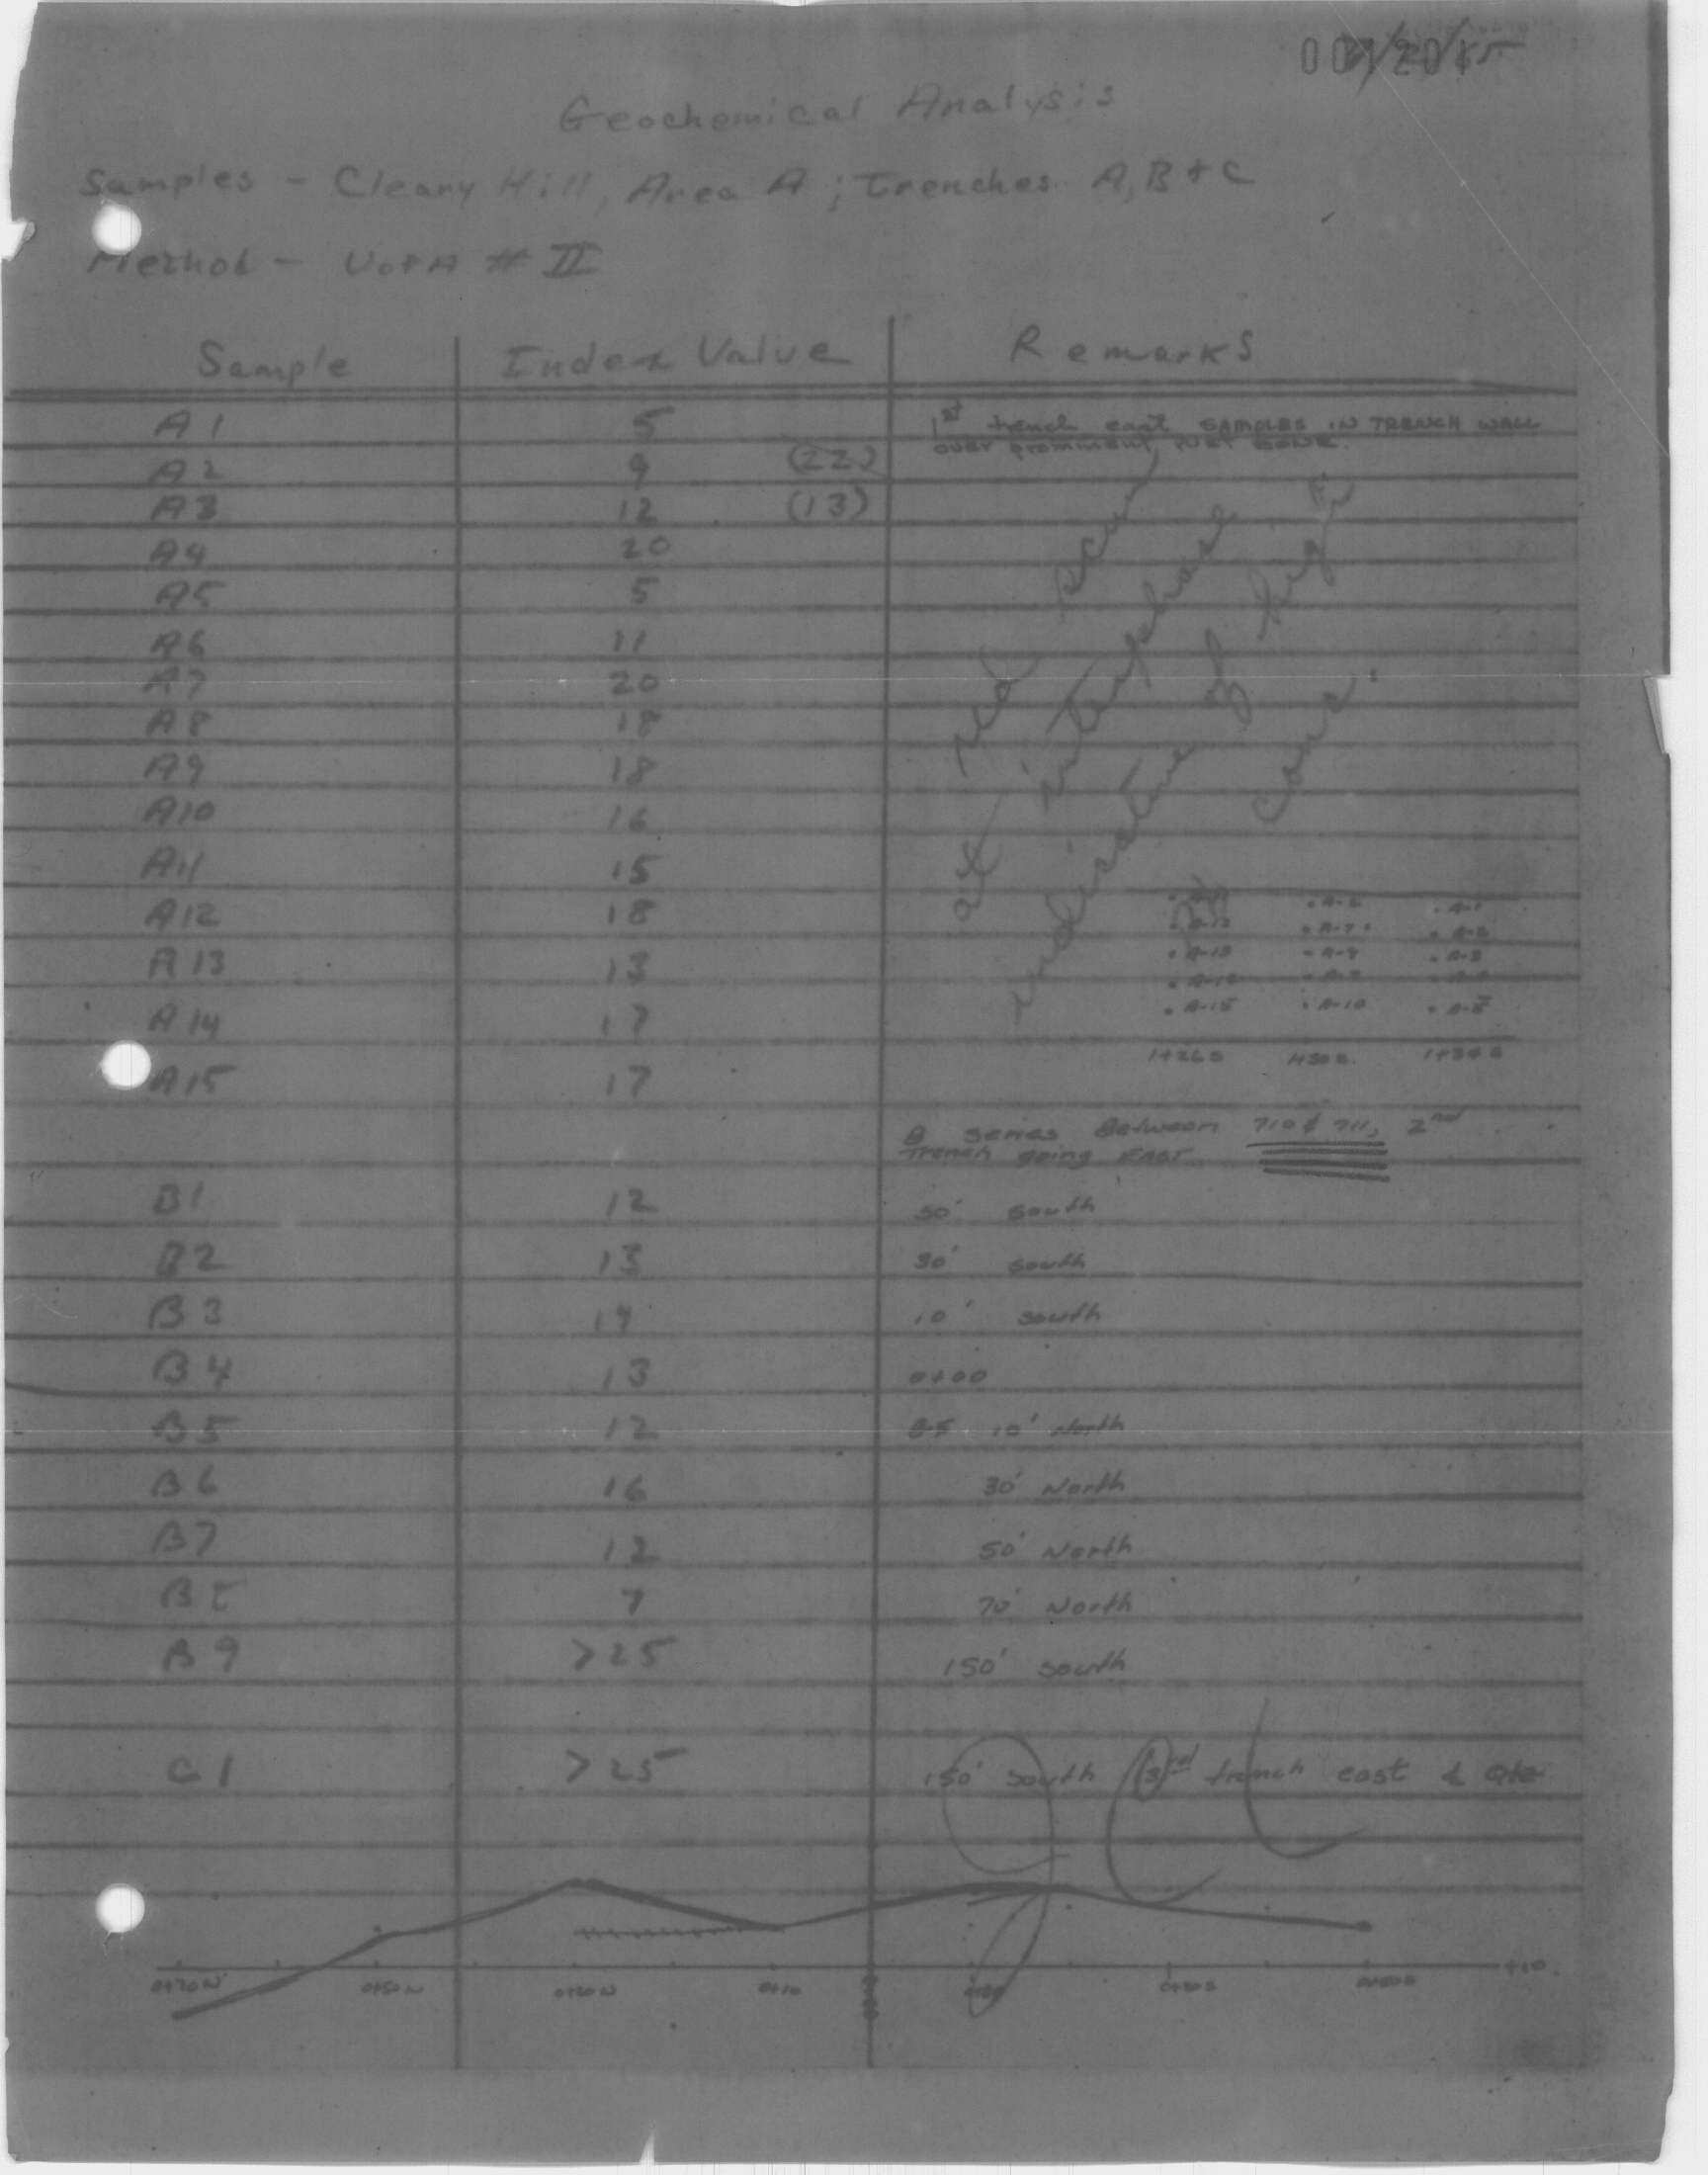 Geochemical Analysis
Samples - Cleary Hill, Area A; Trenches A, B + C
Method - U of A # II
Sample Index Value Remarks
A1 5 1st trench east SAMPLES IN TRENCH WALL
over prominent ZONE.
A2 9 (22)
A3 12 (13)
A4 20
A5 5
A6 11
A7 20
A8 18
A9 18
A10 16
A11 15
A12 18
A13 13
A14 17
A15 17
red scum
at interphase
indicative of high
conc.
. A-6 . A-1
. A-12 . A-7 . A-2
. A-13 . A-8 . A-3
. A-14 . A-9 . A-4
. A-15 . A-10 . A-5
1+26S 1+30S 1+34S
B series Between 710 & 711, 2nd
Trench going EAST
B1 12 50' South
B2 13 30' South
B3 14 10' South
B4 13 0+00
B5 12 B-5 10' North
B6 16 30' North
B7 12 50' North
B8 7 70' North
B9 >25 150' South
C1 >25 150' South (3)rd trench east &
0+70N 0+50N 0+30N 0+10 0+30S 0+50S +10.